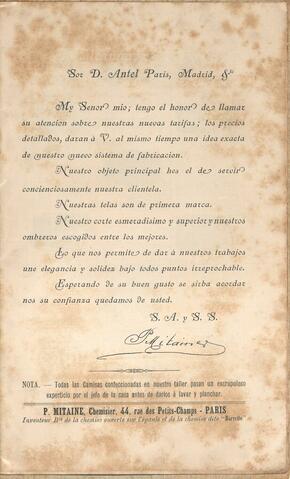 Sor D. Antel Paris, Madrid, &ª
My Señor mio; tengo el honor de llamar
su atencion sobre nuestras nuevas tarifas; los precios
detallados, daran à V. al mismo tiempo una idea exacta
de nuestro nueco sistema de fabricacion.
Nuestro objeto principal hes el de servir
concienciosamente nuestra clientela.
Nuestras telas son de primera marca.
Nuestro corte esmeradisimo y superior y nuestros
ombreros escogidos entre los mejores.
Lo que nos permite de dar à nuestros trabajos
une elegancia y solidez bajo todos puntos irreprochable.
Esperando de su buen gusto se sirba acordar
nos su confianza quedamos de usted.
S. A. y S. S.
P. Mitaine
NOTA. — Todas las Camisas confeccionadas en nuestro taller pasan un escrupuloso
experticio por el jefe de la casa antes de darlos à lavar y planchar.
P. MITAINE, Chemisier, 44, rue des Petits-Champs - PARIS
Inventeur Bté de la chemise ouverte sur l'épaule et de la chemise dite